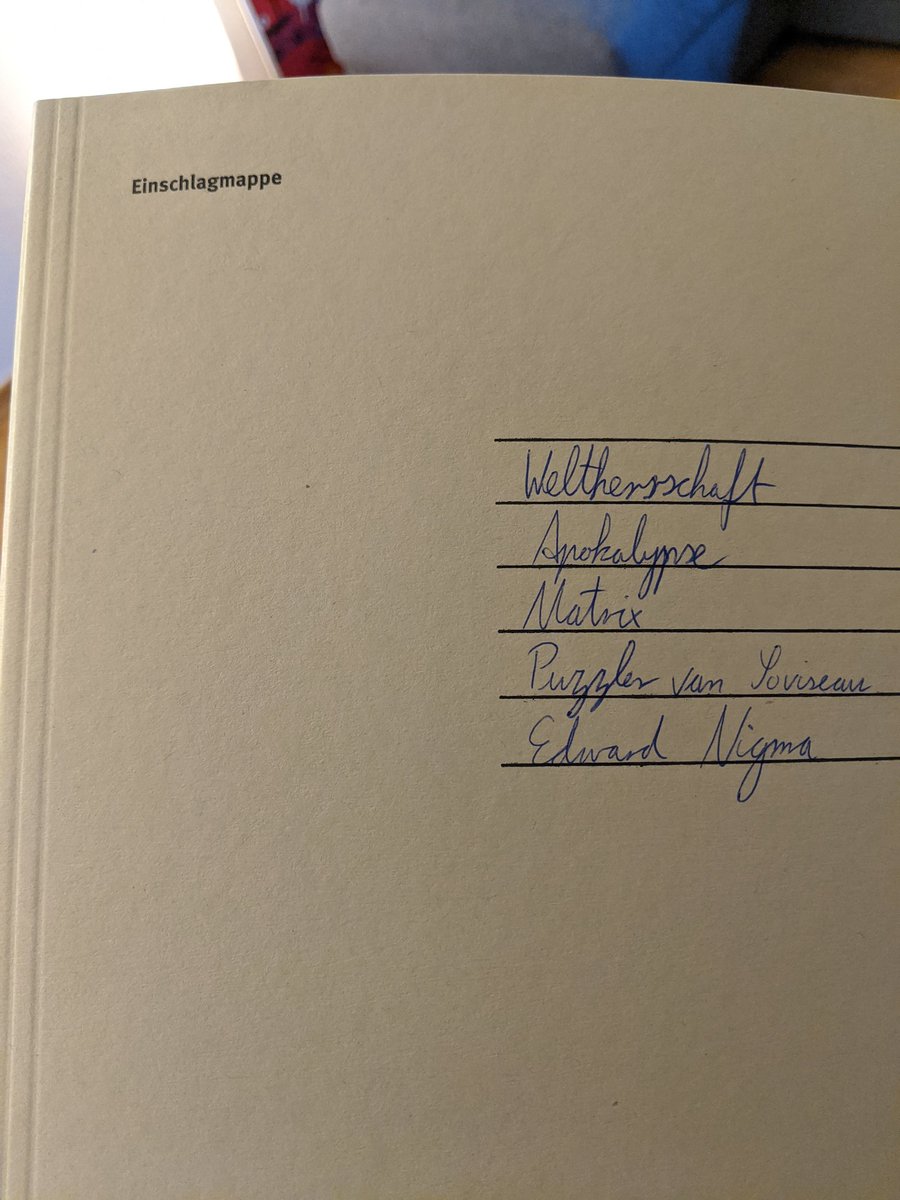 Einschlagmappe
Weltherrschaft
Apokalypse
Matrix
Puzzler van Soviseau
Edward Nigma